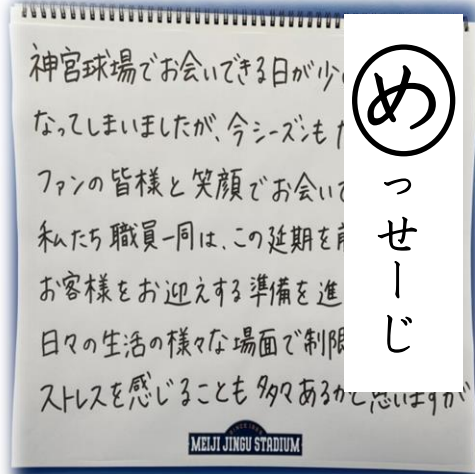 神宮球場でお会いできる日が少
なってしまいましたが、今シーズンも
ファンの皆様と笑顔でお会いで
私たち職員一同は、この延期を前
お客様をお迎えする準備を進
日々の生活の様々な場面で制限
ストレスを感じることも多々あるかと思いますが
SINCE 1926
MEIJI JINGU STADIUM
めっせーじ